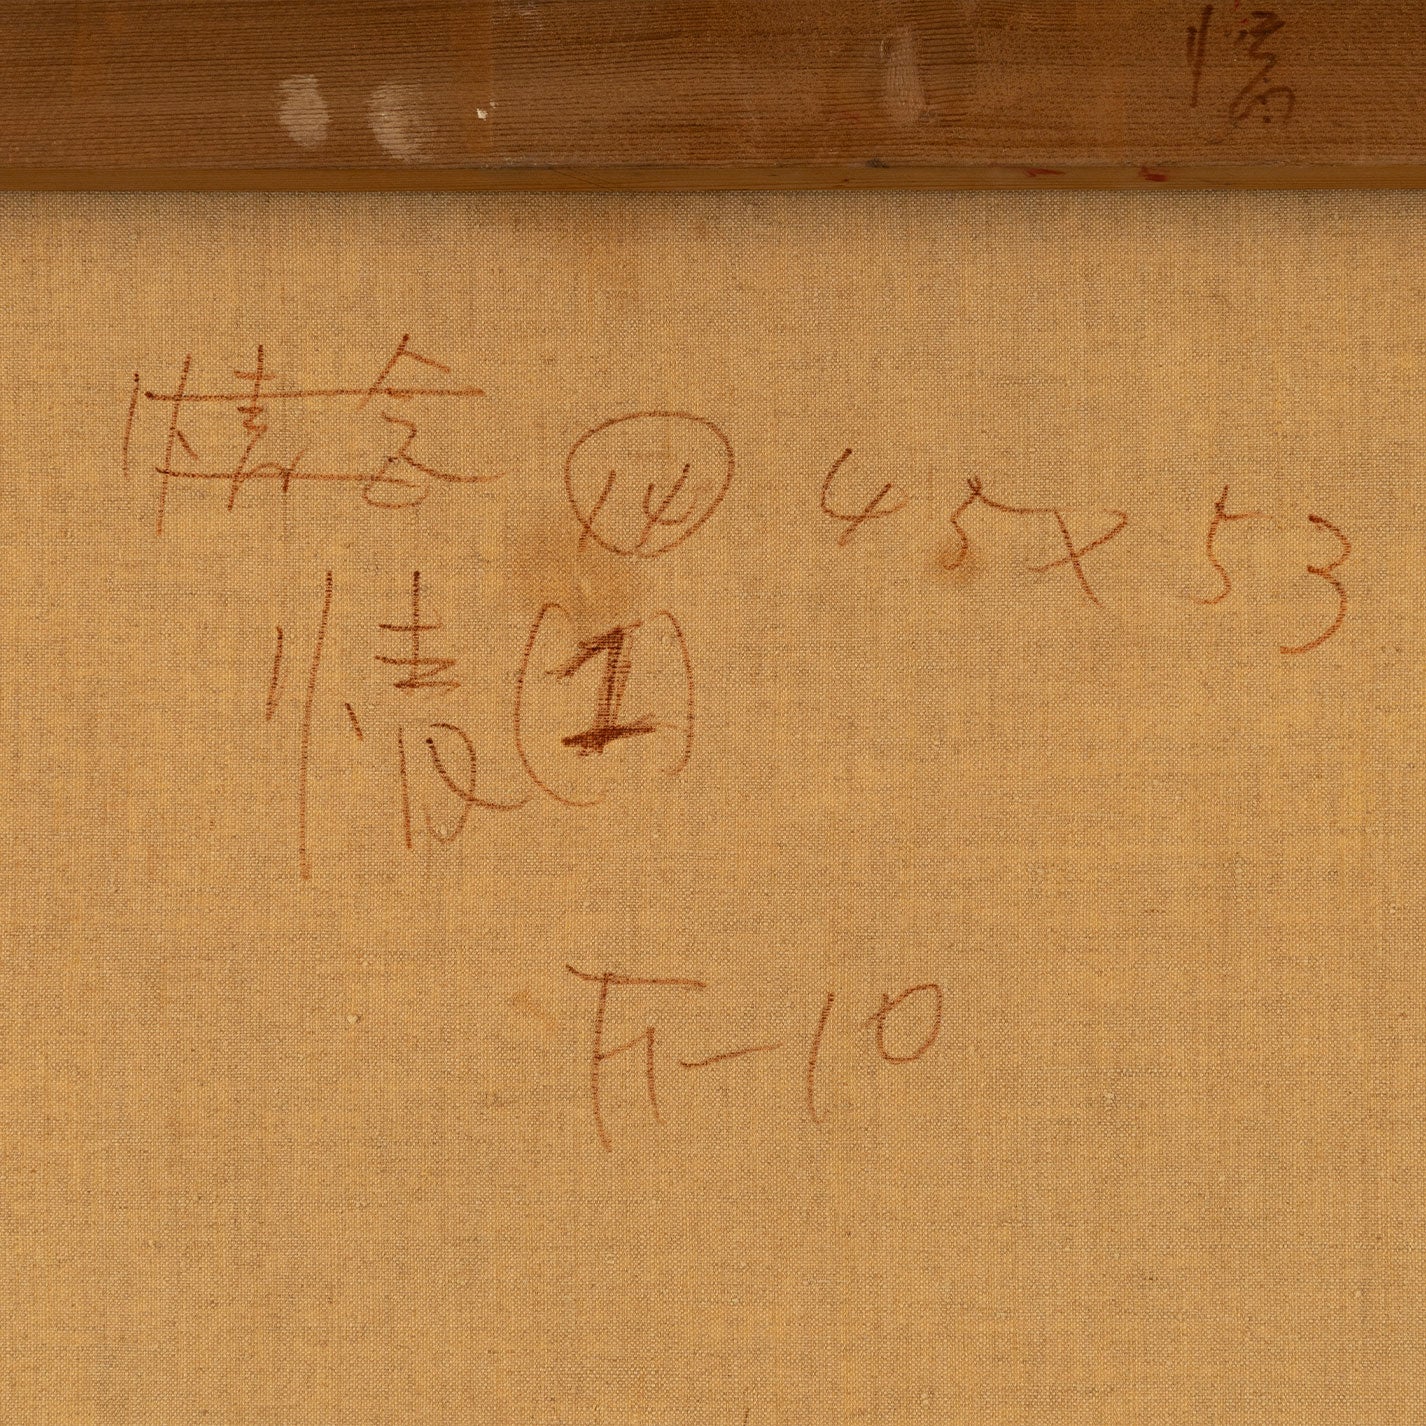 情
情念 14 45x53
情(1)
F-10